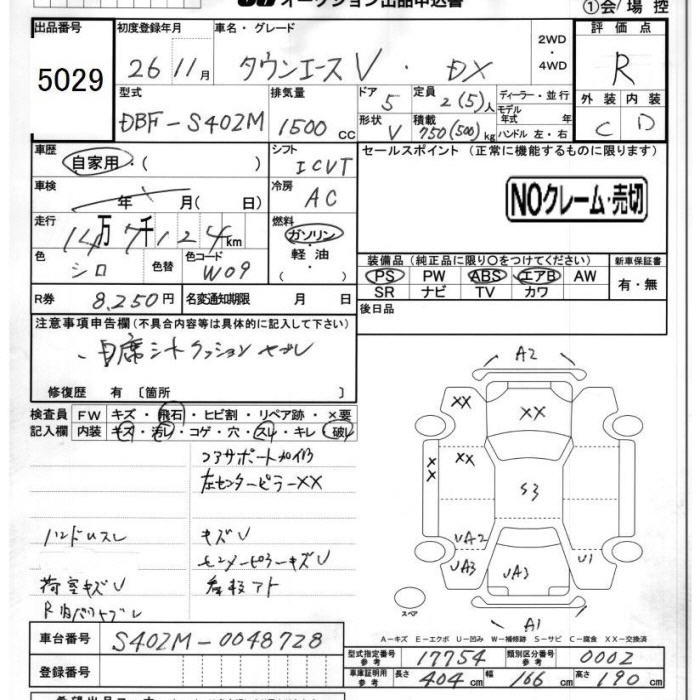 オークション出品申込書
①会/場 控
出品番号 5029
初度登録年月 26 11月
車名・グレード タウンエースV ・ DX
2WD ・ 4WD
評価点 R
外装 C 内装 D
型式 DBF-S402M
排気量 1500 cc
ドア 5
形状 V
定員 2(5)人
積載 750(500)kg
ディーラー・並行
モデル年式 年
ハンドル 左・右
車歴 自家用・( )
シフト ICVT
セールスポイント (正常に機能するものに限ります)
車検 年 月( 日)
冷房 AC
NOクレーム・売切
走行 14万7千124km
燃料 ガソリン・軽油・( )
色 シロ
色替
色コード W09
装備品(純正品に限り〇をつけてください)
新車保証書 有・無
PS PW ABS エアB AW
SR ナビ TV カワ
R券 8,250円
名変通知期限 月 日
後日品
注意事項申告欄(不具合内容等は具体的に記入して下さい)
修復歴 有 〔箇所 〕
検査員記入欄
FW キズ・飛石・ヒビ割・リペア跡・×要
内装 キズ・汚レ・コゲ・穴・スレ・キレ・破レ
コアサポート
左センターピラーXX
ハンドルスレ
キズV
荷室キズV
A2
XX
XX
XX
XX
S3
UA2
UA3
UA3
U1
A1
スペア
A－キズ E－エクボ U－凹み W－補修跡 S－サビ C－腐食 XX－交換済
車台番号 S402M-0048728
登録番号
型式指定番号 参考 17754
類別区分番号 参考 0002
車庫証明用 参考 長さ 404cm 幅 166cm 高さ 190cm